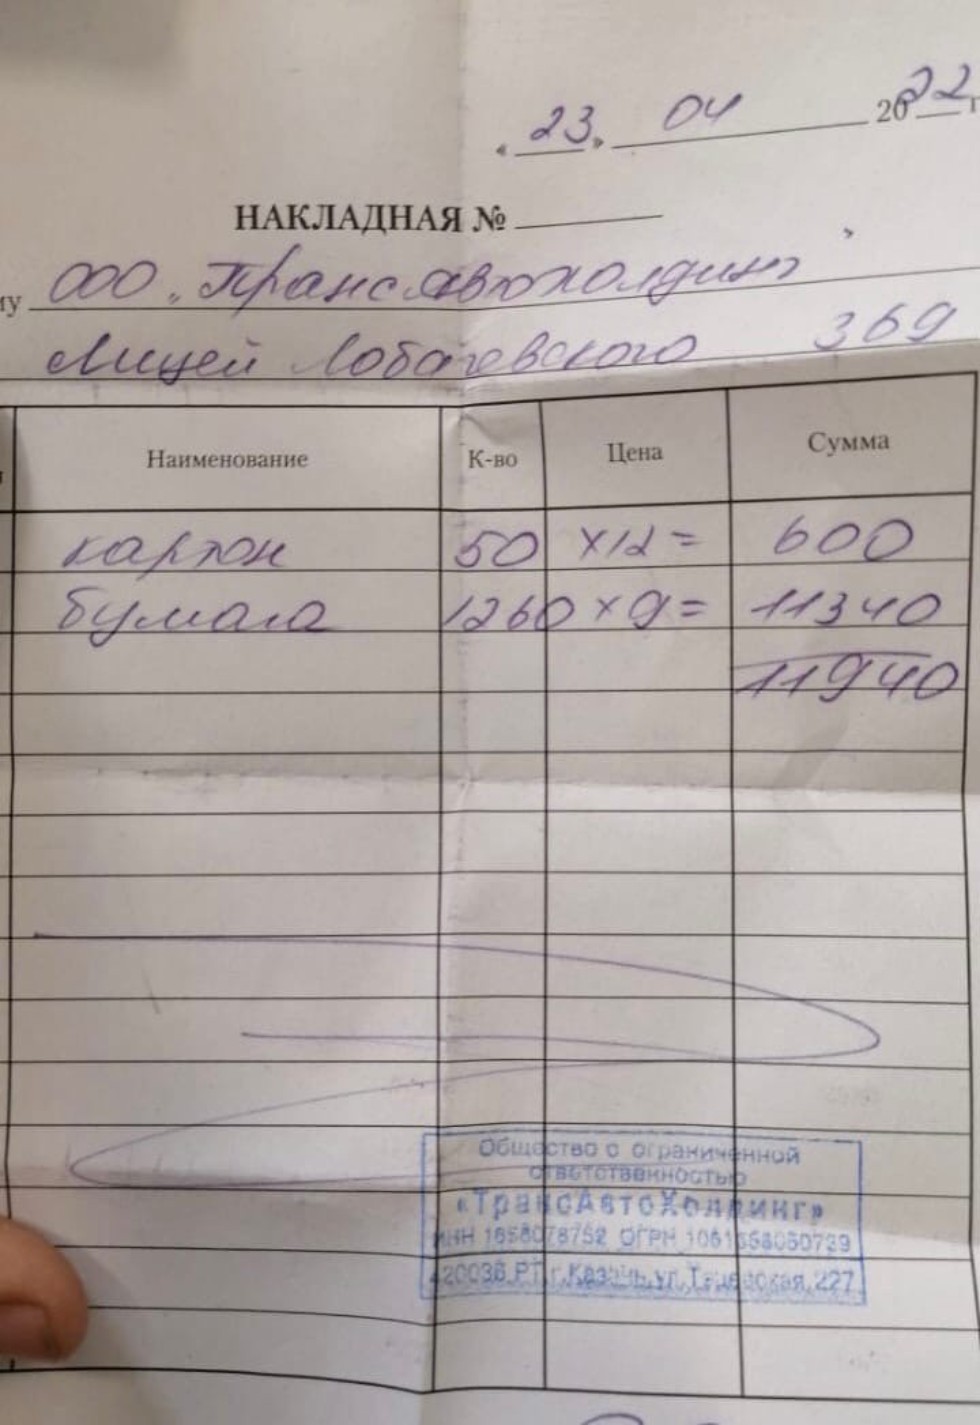 « 23 » 04 2022 г
НАКЛАДНАЯ №
му ООО „Трансавтохолдинг"
Лицей Лобачевского 369
Наименование К-во Цена Сумма
картон 50 x12= 600
бумага 1260 x9= 11340
11940
Общество с ограниченной
ответственностью
«ТрансАвтоХолдинг»
ИНН 1658078752 ОГРН 1061658050739
420036, РТ, г. Казань, ул. Тэцевская, 227